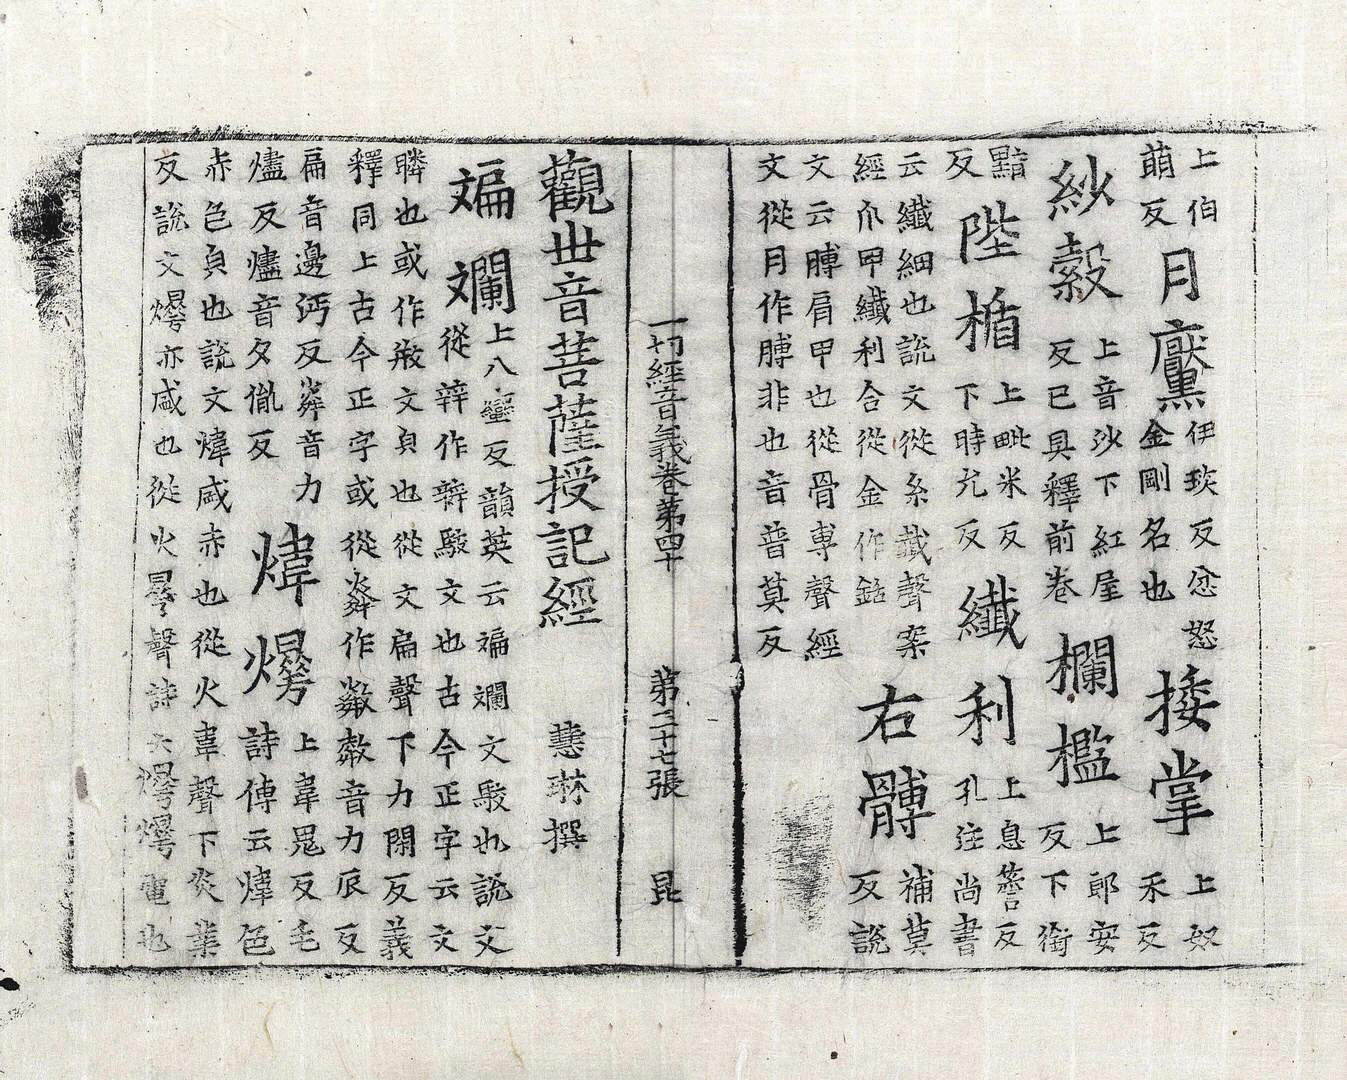 上伯萌反月黶伊琰反忿怒金剛名也捼掌上奴禾反
紗縠上音沙下紅屋反已具釋前卷欄檻上郎安反下銜
黯反陛楯上毗米反下時允反纖利上息簷反孔注尚書
云纖細也說文從糸韱聲案經爪甲纖利合從金作銛右髆補莫反說
文云髆肩甲也從骨專聲經文從月作膊非也音普莫反
一切經音義卷第四十 第二十七張 昆
觀世音菩薩授記經 慧琳撰
斒斕上八蠻反韻英云斒斕文駮也說文從辡作辬駮文也古今正字云文
瞵也或作文皃也從文扁聲下力閑反義釋同上古今正字或從粦作音力辰反
扁音邊沔反粦音力燼反燼音夕胤反煒爗上韋鬼反毛詩傳云煒色
赤色皃也說文煒盛赤也從火韋聲下炎業反說文爗亦盛也從火曅聲詩云爗爗電也